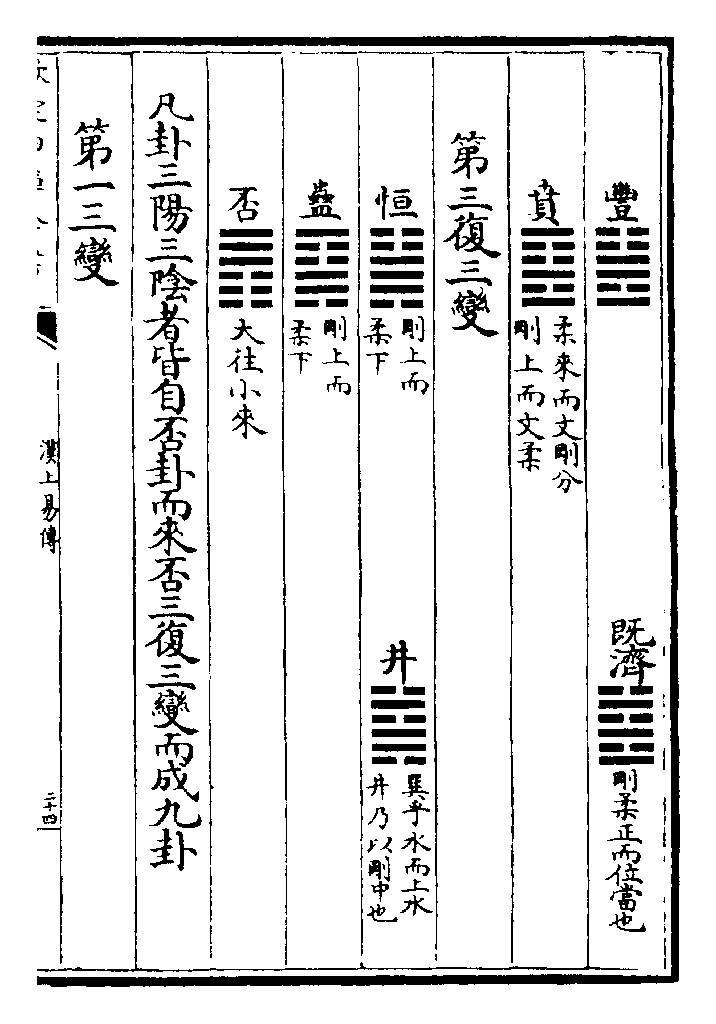 豐
既濟
剛柔正而位當也
賁
柔來而文剛分
剛上而文柔
第三復三變
恒
剛上而
柔下
井
巽乎水而上水
井乃以剛中也
蠱
剛上而
柔下
否
大往小來
凡卦三陽三陰者皆自否卦而來否三復三變而成九卦
第一三變
欽定四庫全書
漢上易傳
二十四